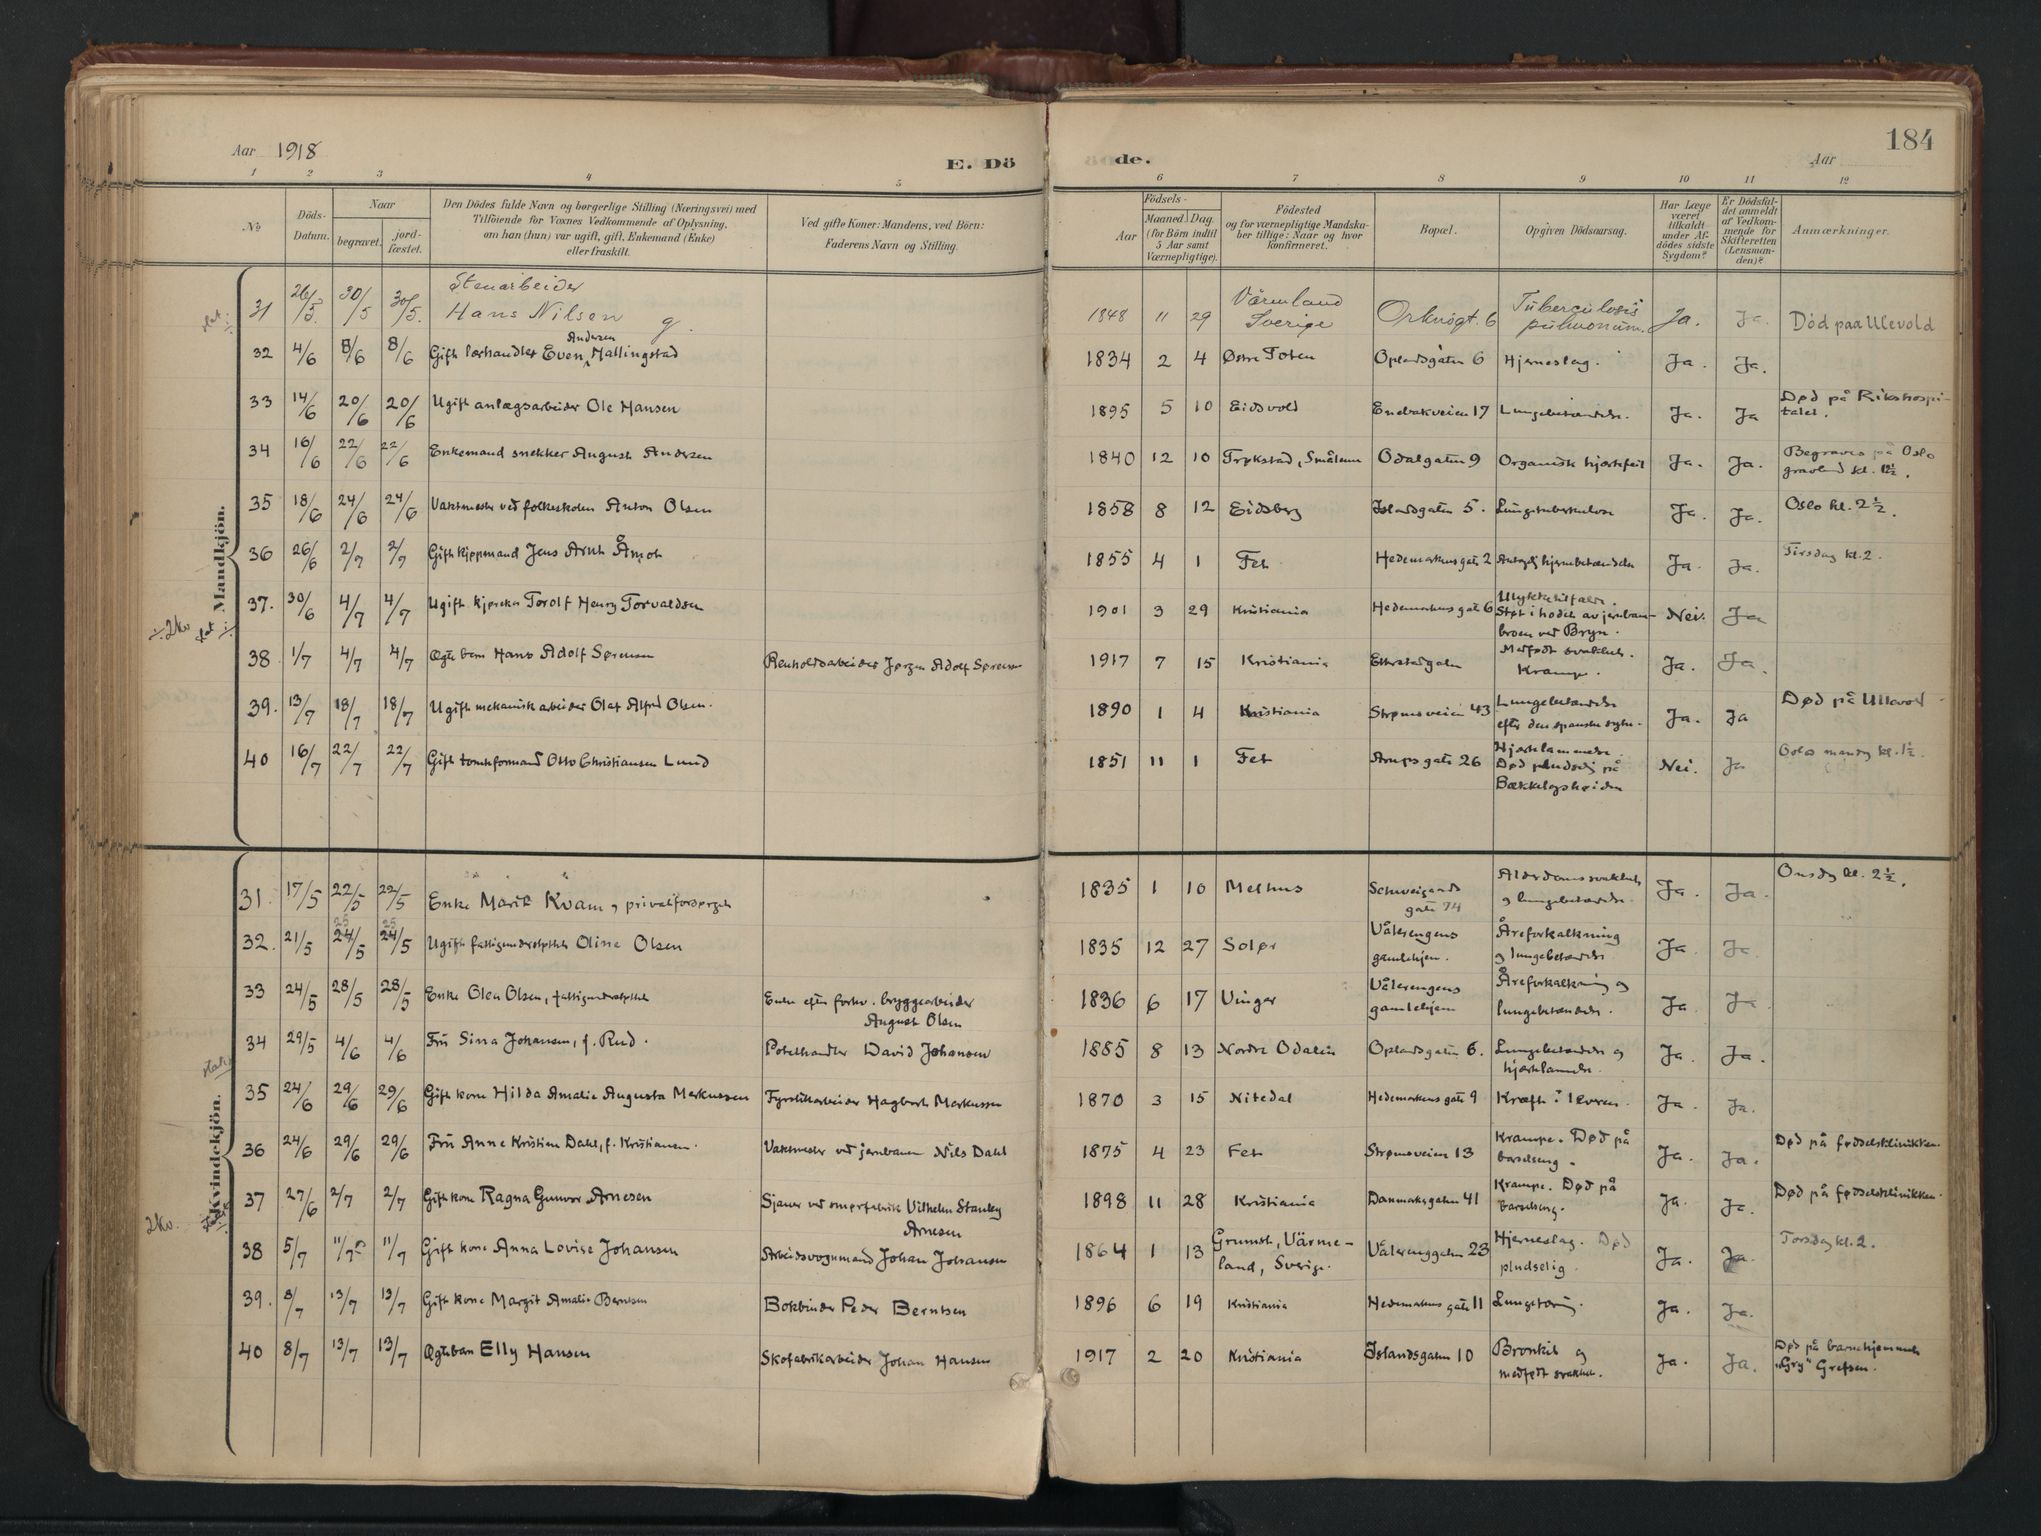 Aar 1918
E. Dö
de.
184
Aar
1 2 3 4 5 6 7 8 9 10 11 12
No
Döds-
Datum.
Naar
begravet.
jord-
fæstet.
Den Dödes fulde Navn og borgerlige Stilling (Næringsvei) med
Tilföiende for Voxnes Vedkommende af Oplysning,
om han (hun) var ugift, gift, Enkemand (Enke)
eller fraskilt.
Ved gifte Koner: Mandens, ved Börn:
Faderens Navn og Stilling.
Födsels-
Aar
Maaned. Dag.
(for Börn indtil
5 Aar samt
Værnepligtige).
Födested
og for værnepligtige Mandska-
ber tillige: Naar og hvor
konfirmeret.
Bopæl.
Opgiven Dödsaarsag.
Har Læge
været
tilkaldt
under Af-
dödes sidste
Sygdom?
Er Dödsfal-
det anmeldt
af Vedkom-
mende for
Skifteretten
(Lensman-
den)?
Anmærkninger.
Mandkjön.
31 26/5. 30/5 30/5. Stenarbeider
Hans Nilsen g. 1848 11 29 Värmland
Sverige Orknögt. 6 Tuberculosis
pulmonum. Ja. Ja. Död paa Ulevold
Andersen
32 4/6 8/6 8/6 Gift lærhandler Even Mallingstad 1834 2 4 Østre Toten Oplandsgaten 6 Hjerneslag. Ja. Ja.
33 14/6 20/6 20/6 Ugift anlægsarbeider Ole Hansen 1895 5 10 Eidsvold Enebakveien 17 Lungebetændelse. Ja. Ja Død på Rikshospi-
talet.
34 16/6 22/6 22/6 Enkemand snekker August Andersen 1840 12 10 Trøkstad, Smålene Odalgaten 9 Organisk hjertefeil Ja. Ja. Begraves på Oslo
gravlund kl. 12½.
35 18/6 24/6 24/6 Vaktmester ved folkeskolen Anton Olsen 1858 8 12 Eidsberg Islandsgaten 5. Lungetuberkulose Ja. Ja. Oslo kl. 2½.
36 26/6 2/7 2/7 Gift kjøpmand Jens Arnt Åmot 1855 4 1 Fet Hedemarkens gate 2 hjernebetændelse Ja. Ja. Tirsdag kl. 2.
37. 30/6 4/7 4/7 Ugift kjøreka Torolf Henry Torvaldsen 1901 3 29 Kristiania Hedemarkens gate 6 Ulykkestilfælde.
Støt i hodet av jernban-
broen ved Bryn. Nei. Ja
38 1/7 4/7 4/7 Ægte barn Hans Adolf Sørensen Renholdsarbeider Jørgen Adolf Sørensen 1917 7 15 Kristiania Etterstadgaten Medfødt svakhet.
Krampe. Ja. Ja.
39. 13/7 18/7 18/7 Ugift mekanisk arbeider Olaf Alfred Olsen. 1890 1 4 Kristiania Strømsveien 43 Lungebetændelse
efter den spanske syke. Ja. Ja Død på Ullevol
40 16/7 22/7 22/7 Gift tomteformand Otto Christiansen Lund 1851 11 1 Fet Arups gate 26 Hjertelammelse.
Død pludselig på
Bækkelagshøiden Nei. Ja Oslo mandag kl. 1½.
Kvindekjön.
31. 17/5 22/5 22/5 Enke Marit Kvam, privatforsørget 1835 1 10 Melhus Schweigaards
gate 74 Alderdomssvakhet
og lungebetændelse. Ja. Ja. Onsdag kl. 2½.
25 25
32. 21/5 24/5 24/5 Ugift fattigunderstøttet Oline Olsen 1835 12 27 Solør Vålerengens
gamlehjem. Åreforkalkning
og lungebetændelse Ja. Ja
33 24/5 28/5 28/5 Enke Olea Olsen, fattigunderstøttet Enke efter forhv. bryggearbeider
August Olsen 1836 6 17 Vinger Vålerengens
gamlehjem Åreforkalkning og
lungebetændelse. Ja Ja
34 29/5 4/6 4/6 Fru Sina Johansen, f. Rud. Potethandler David Johansen 1885 8 13 Nordre Odalen Oplandsgaten 6. Lungebetændelse og
hjertelammelse. Ja. Ja.
35 24/6 29/6 29/6 Gift kone Hilda Amalie Augusta Markussen Fyrstikarbeider Hagbart Markussen 1870 3 15 Nitedal Hedemarkens gate 9 Kræft i leveren. Ja. Ja.
36 24/6 29/6 29/6 Fru Anne Kristine Dahl, f. Kristiansen. Vaktmester ved jernbanen Nils Dahl 1875 4 23 Fet Strømsveien 13 Krampe. Død på
barselseng. Ja. Ja. Død på fødselsklinikken.
37 27/6 2/7 2/7 Gift kone Ragna Gunvor Arnesen Sjauer ved smørfabrik Vilhelm Stanley
Arnesen 1898 11 28 Kristiania Danmarksgaten 41 Krampe. Død på
barselseng. Ja. Ja. Død på fødselsklinikken.
38 5/7 11/7 11/7 Gift kone Anna Lovise Johansen Arbeidsvognmand Johan Johansen 1864 1 13 Grumst, Värme-
land, Sverige. Vålerenggaten 23 Hjerneslag. Død
pludselig. Ja. Ja. Torsdag kl. 2.
39. 8/7 13/7 13/7 Gift kone Margit Amalie Berntsen Bokbinder Peder Berntsen 1896 6 19 Kristiania Hedemarkens gate 11 Lungetæring. Ja. Ja.
40 8/7 13/7 13/7 Ægtebarn Elly Hansen Skofabrikarbeider Johan Hansen 1917 2 20 Kristiania Islandsgaten 10 Bronkit og
medfødt svakhet. Ja. Ja. Død på barnehjemmet
"Gry" Grefsen.